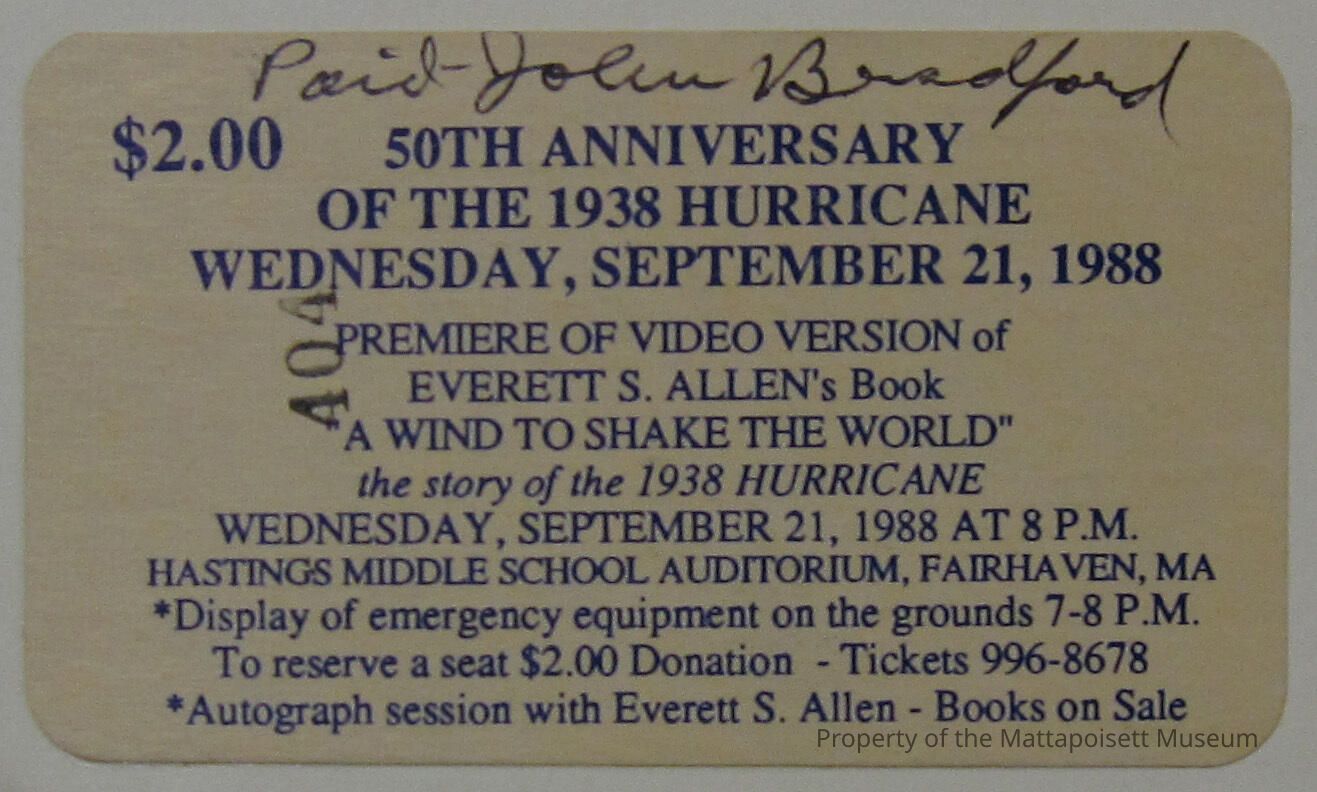 Paid - John Bradford
$2.00 50TH ANNIVERSARY
OF THE 1938 HURRICANE
WEDNESDAY, SEPTEMBER 21, 1988
404
PREMIERE OF VIDEO VERSION of
EVERETT S. ALLEN's Book
"A WIND TO SHAKE THE WORLD"
the story of the 1938 HURRICANE
WEDNESDAY, SEPTEMBER 21, 1988 AT 8 P.M.
HASTINGS MIDDLE SCHOOL AUDITORIUM, FAIRHAVEN, MA
*Display of emergency equipment on the grounds 7-8 P.M.
To reserve a seat $2.00 Donation - Tickets 996-8678
*Autograph session with Everett S. Allen - Books on Sale
Property of the Mattapoisett Museum